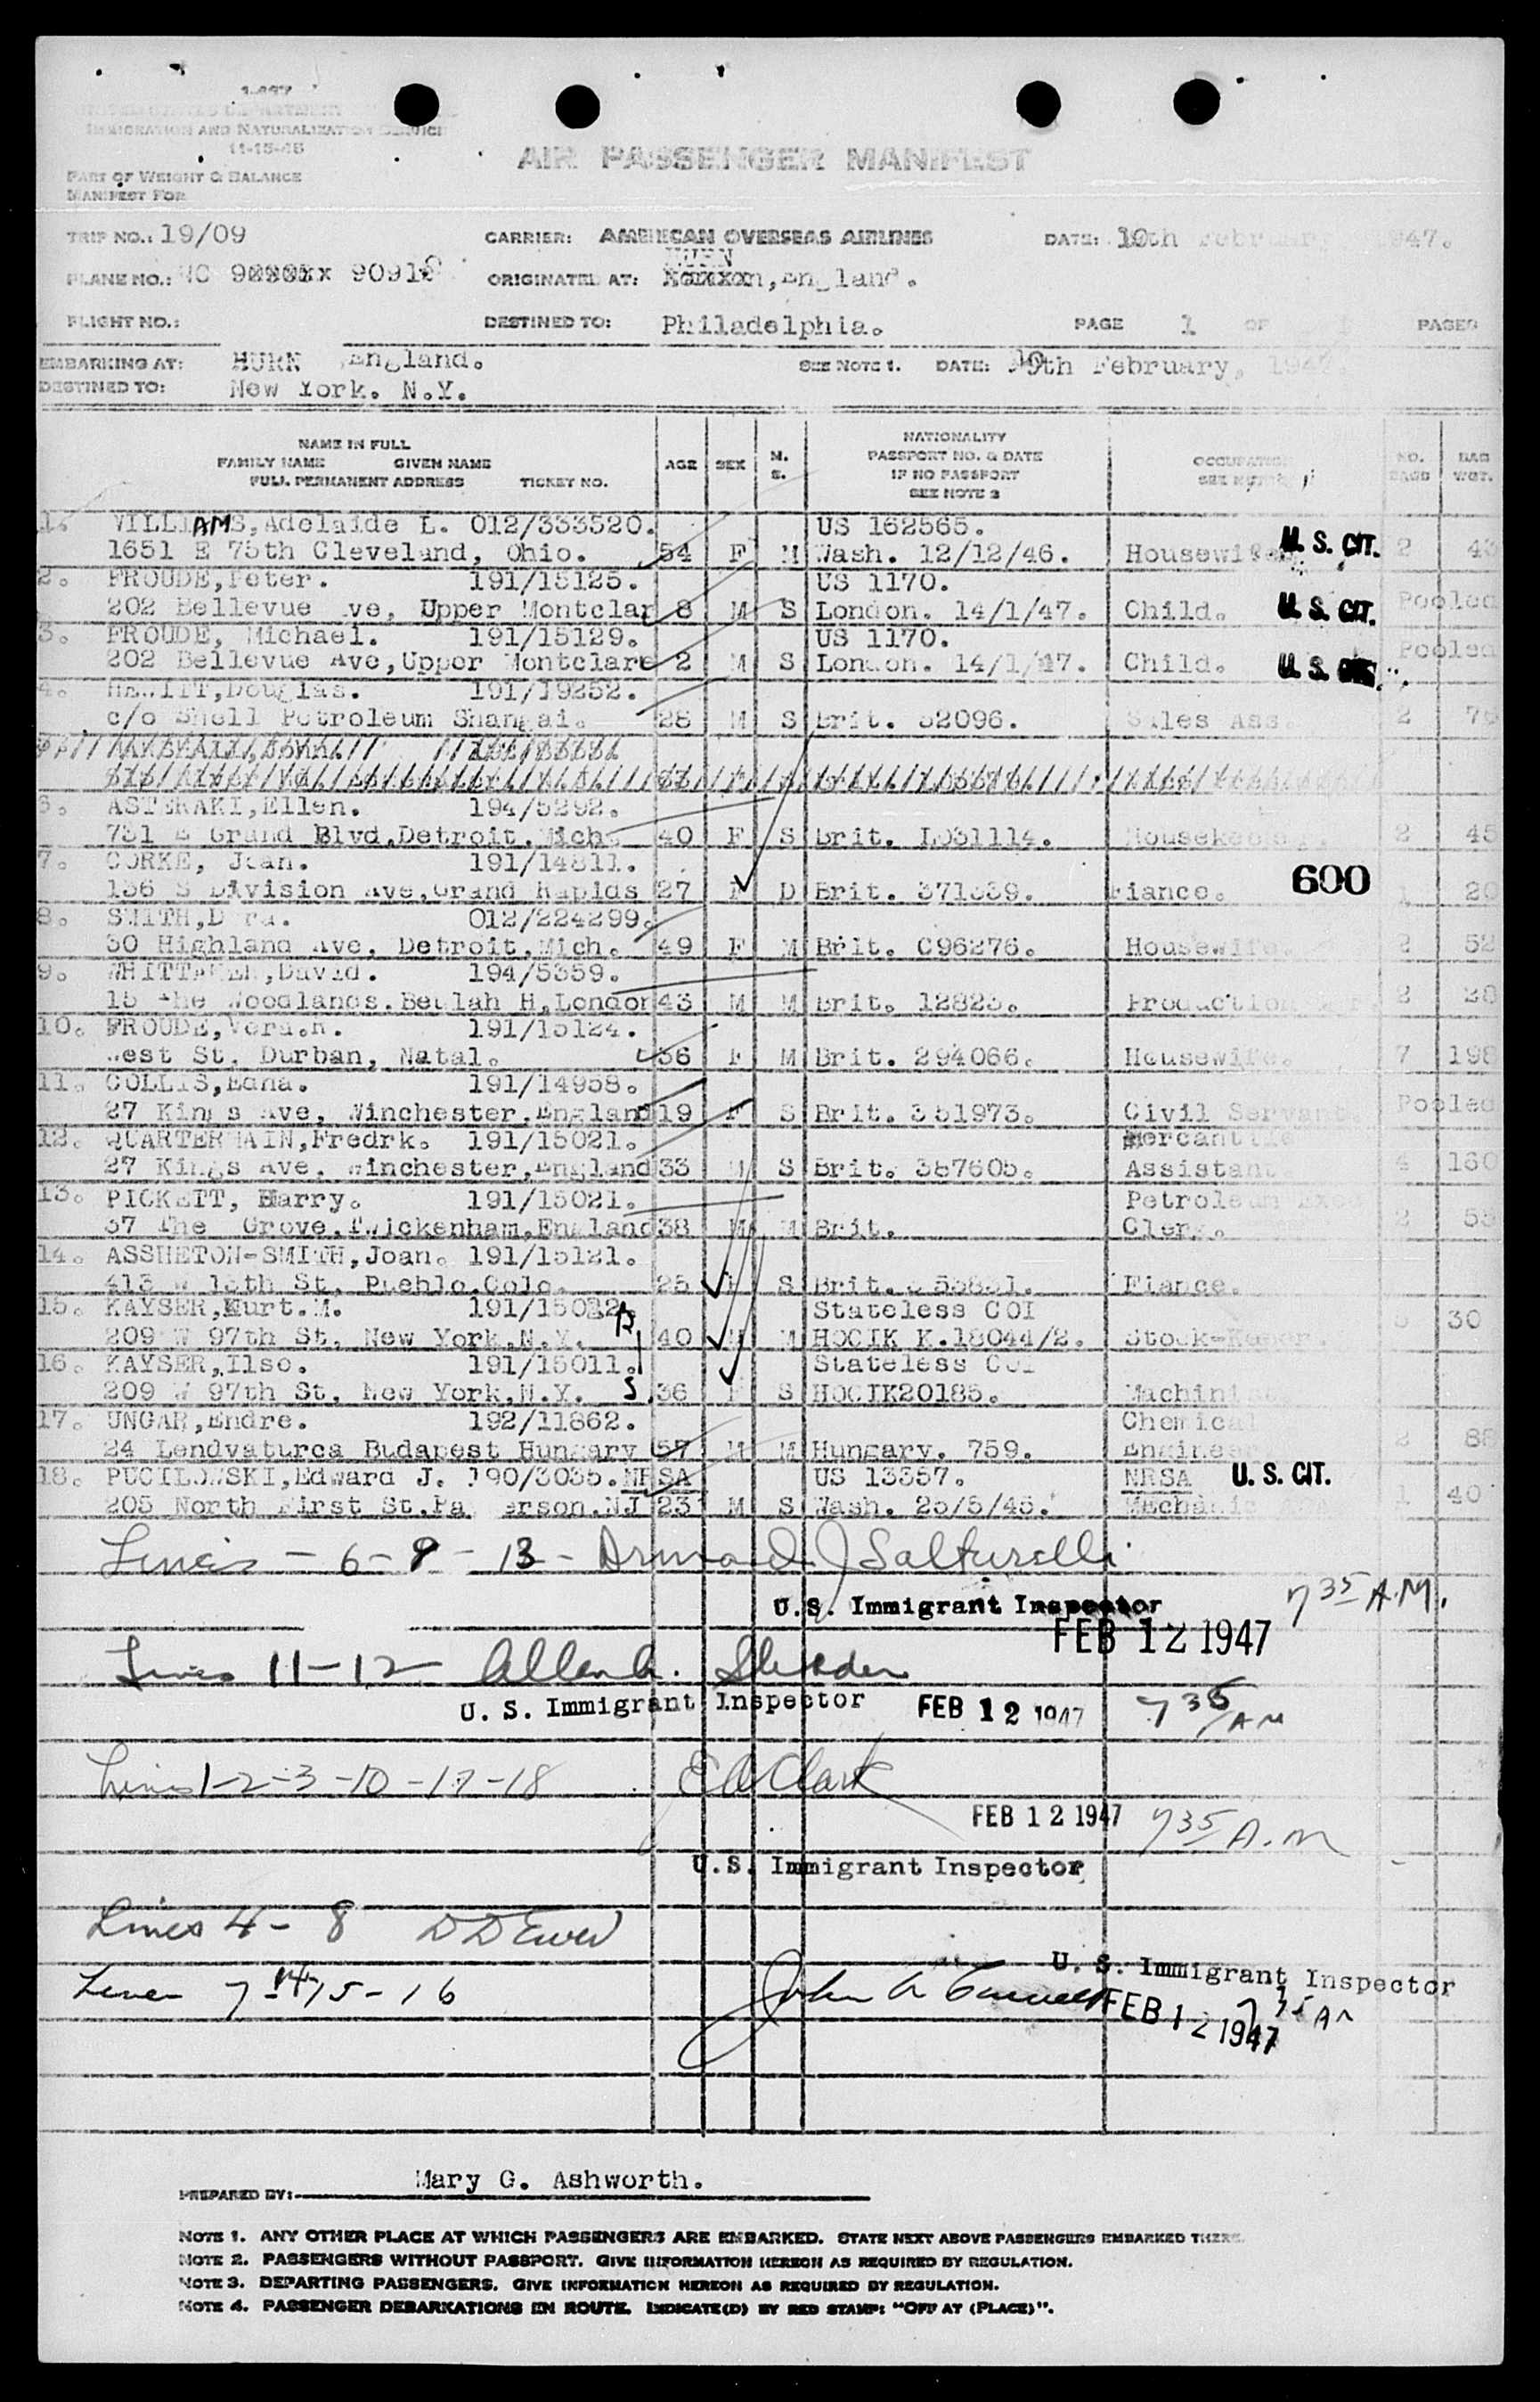 I-497
UNITED STATES DEPARTMENT
IMMIGRATION AND NATURALIZATION SERVICE
11-15-45
AIR PASSENGER MANIFEST
PART OF WEIGHT & BALANCE
MANIFEST FOR
TRIP NO.: 19/09 CARRIER: AMERICAN OVERSEAS AIRLINES DATE: 10th February 1947.
PLANE NO.: NC 90910 ORIGINATED AT: HURN, England.
FLIGHT NO.: DESTINED TO: Philadelphia. PAGE 1 OF 1 PAGES
EMBARKING AT: HURN England. SEE NOTE 1. DATE: 10th February, 1947.
DESTINED TO: New York. N.Y.
NAME IN FULL
FAMILY NAME GIVEN NAME
FULL PERMANENT ADDRESS TICKET NO. AGE SEX M. S. NATIONALITY PASSPORT NO. & DATE IF NO PASSPORT SEE NOTE 2 OCCUPATION SEE NOTE NO. BAGS BAG WGT.
1. WILLIAMS, Adelaide L. 012/333520. US 162565.
1651 E 75th Cleveland, Ohio. 54 F M Wash. 12/12/46. Housewife U. S. CIT. 2 43
2. FROUDE, Peter. 191/15125. US 1170.
202 Bellevue Ave, Upper Montclar 8 M S London. 14/1/47. Child. U. S. CIT. Pooled
3. FROUDE, Michael. 191/15129. US 1170.
202 Bellevue Ave, Upper Montclare 2 M S London. 14/1/47. Child. U. S. CIT. Pooled
4. HEWITT, Douglas. 191/19252.
c/o Shell Petroleum Shangai. 28 M S Brit. 52096. Sales Ass. 2 76
6. ASTERAKI, Ellen. 194/5292.
731 E Grand Blvd, Detroit, Mich. 40 F S Brit. L031114. Housekeeper. 2 45
7. CORKE, Jean. 191/14811.
136 S Division Ave, Grand Rapids 27 F D Brit. 371339. Fiance. 600 1 20
8. SMITH, Dora. 012/224299.
30 Highland Ave, Detroit, Mich. 49 F M Brit. C96276. Housewife. 2 52
9. WHITTAKER, David. 194/5359.
15 The Woodlands. Beulah H, London 43 M M Brit. 12823. Production 2 20
10. FROUDE, Veraon. 191/15124.
West St, Durban, Natal. 36 F M Brit. 294066. Housewife. 7 198
11. COLLIS, Edna. 191/14958.
27 Kings Ave, Winchester, England 19 F S Brit. 351973. Civil Servant Pooled
12. QUARTERMAIN, Fredrk. 191/15021. Mercantile
27 Kings Ave, Winchester, England 33 M S Brit. 387605. Assistant 4 160
13. PICKETT, Harry. 191/15021. Petroleum Exe
37 The Grove, Twickenham, England 38 M M Brit. Clerk. 2 55
14. ASSHETON-SMITH, Joan. 191/15121.
413 W 15th St, Pueblo, Colo. 25 F S Brit. 355831. Fiance.
15. KAYSER, Kurt. M. 191/15012. Stateless COI
209 W 97th St, New York, N.Y. 40 M M HOCIK K.18044/2. Stock-Keper. 3 30
16. KAYSER, Ilse. 191/15011. Stateless COI
209 W 97th St, New York, N.Y. 36 F S HOCIK20185. Machinist
17. UNGAR, Endre. 192/11862. Chemical
24 Lendvaturca Budapest Hungary 57 M M Hungary. 759. Engineer 2 88
18. PUCILOWSKI, Edward J. 190/3035. NRSA US 13357. NRSA U. S. CIT.
205 North First St. Paterson. NJ 23 M S Wash. 25/5/45. Mechanic 1 40
Lines - 6 - 9 - 13 - Armand J Salturelli
U.S. Immigrant Inspector 7 35 A.M.
FEB 12 1947
Lines 11-12 Allen
U. S. Immigrant Inspector FEB 12 1947 7 35 AM
Lines 1-2-3-10-17-18 E A Clark
FEB 12 1947 7 35 A.M
U.S. Immigrant Inspector
Lines 4 - 8 D D Ewer
U. S. Immigrant Inspector
Lines 7 14 15 - 16 John A
FEB 12 1947 7 35 AM
PREPARED BY: Mary G. Ashworth.
NOTE 1. ANY OTHER PLACE AT WHICH PASSENGERS ARE EMBARKED. STATE NEXT ABOVE PASSENGERS EMBARKED THERE.
NOTE 2. PASSENGERS WITHOUT PASSPORT. GIVE INFORMATION HEREON AS REQUIRED BY REGULATION.
NOTE 3. DEPARTING PASSENGERS. GIVE INFORMATION HEREON AS REQUIRED BY REGULATION.
NOTE 4. PASSENGER DEBARKATIONS EN ROUTE. INDICATE(D) BY RED STAMP: "OFF AT (PLACE)".